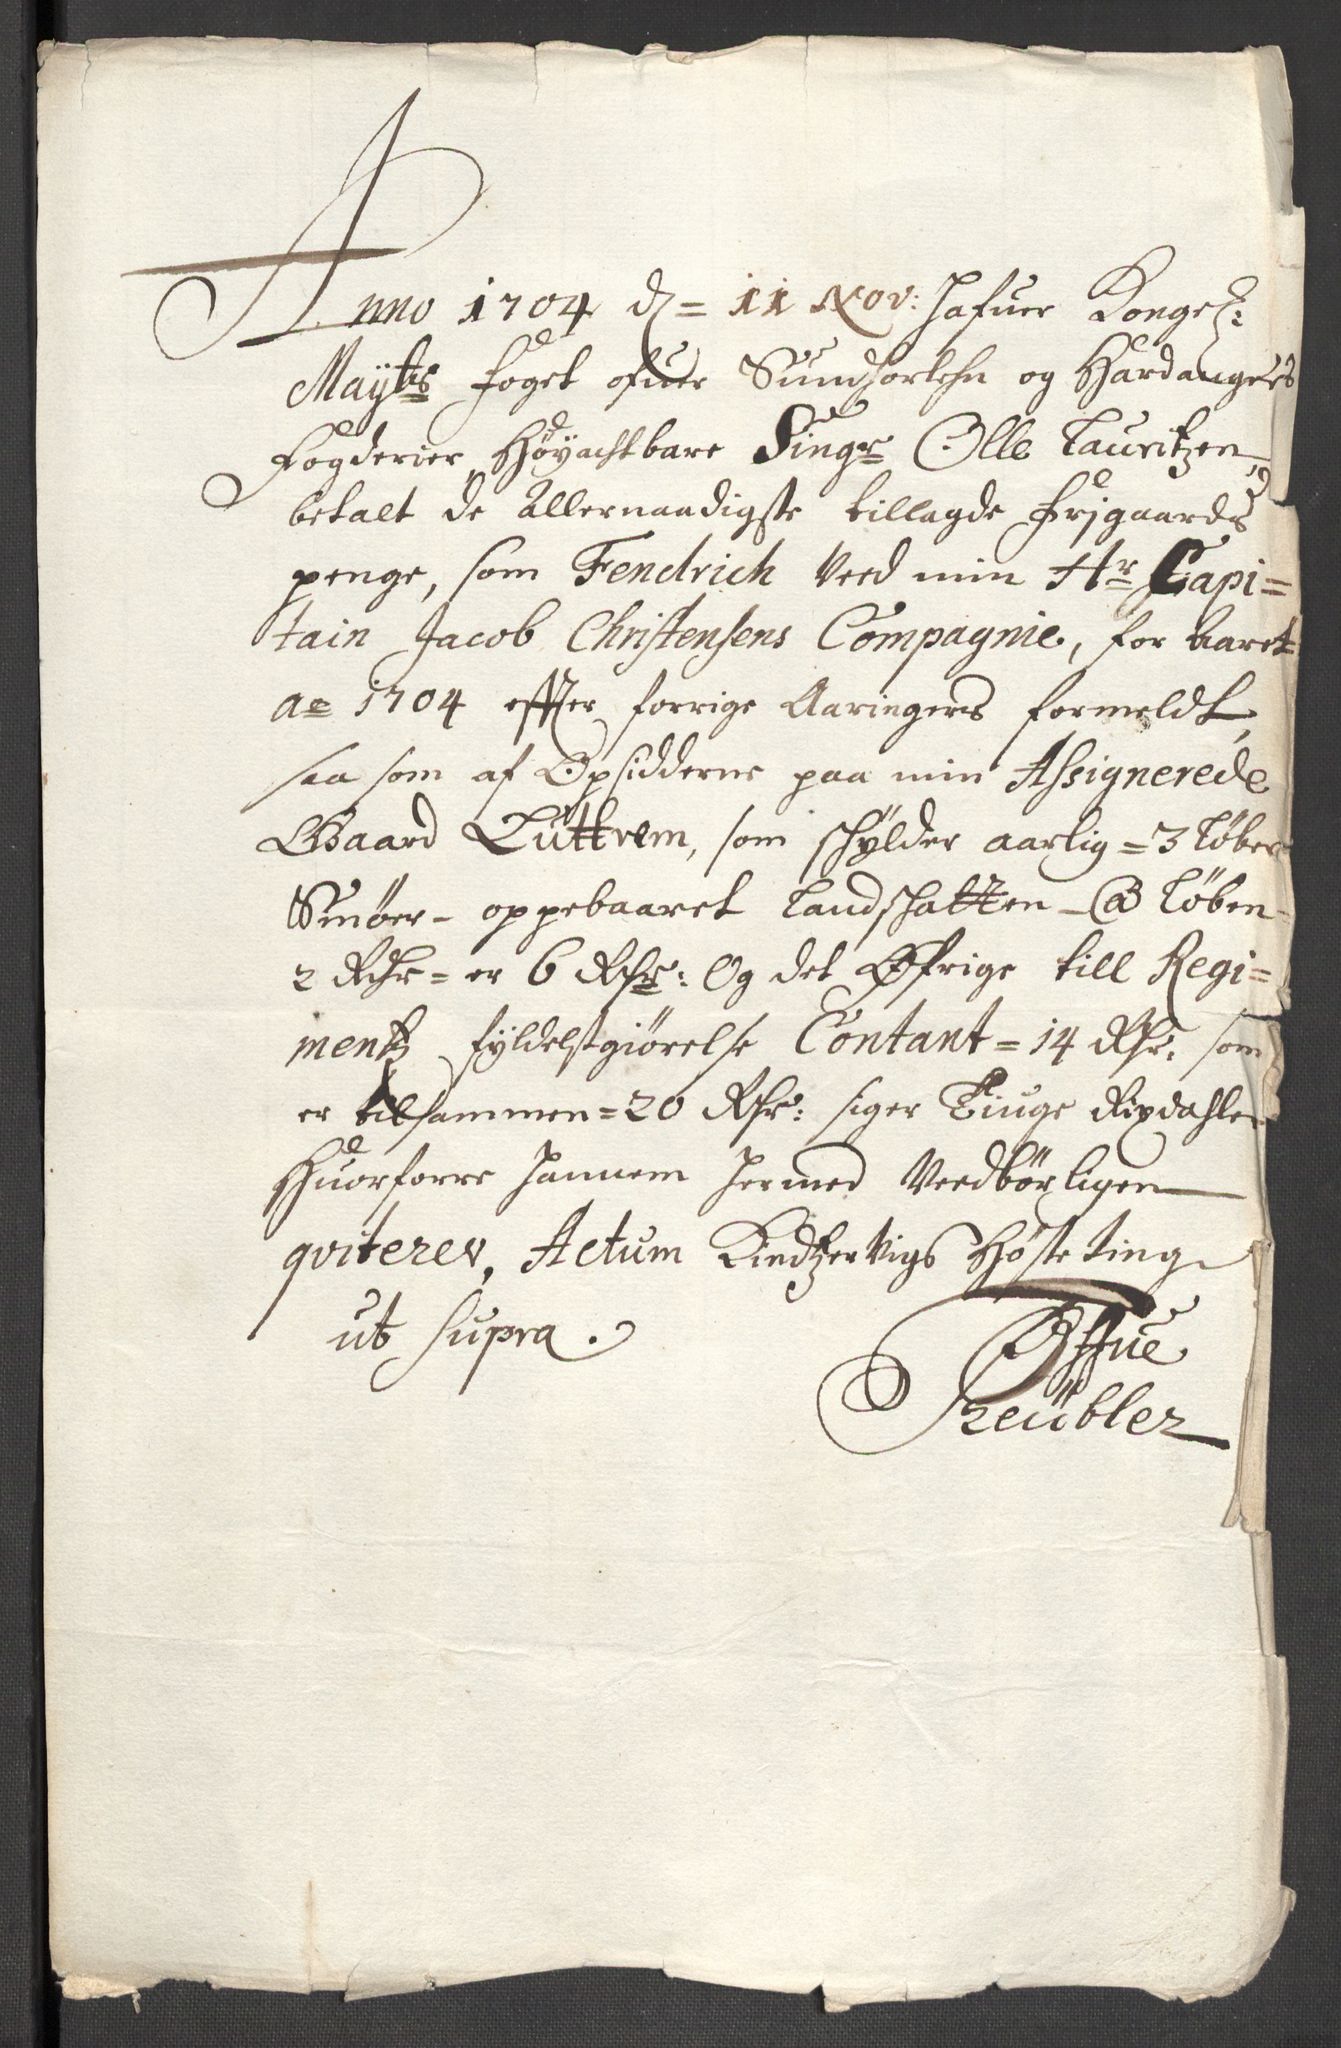 Anno 1704 d = 11 Nov: hafuer Kongel:
Mayts foget ofuer Sundhorlehn og Hardangers
Fogderier, Høyachtbare Singr Olle Lauritzen
betalt de Allernaadigste tillagde frjgaards
penge, som Fendrich Veed min Hr Capi=
tain Jacob Christensens Compagnie, for Aaret
ao 1704 effter forrige Aaringers formeldt,
saa som af Opsidderne paa min Assignerede
Gaard Luttrem, som schÿlder aarlig = 3 Løber
Smøer - oppebaaret Landschatten - @ Løben
2 Rdr = er 6 Rdr: Og det Øfrige till Regi=
mentz fyldelstgiørelse Contant = 14 Rdr: som
er tilsammen = 20 Rdr: siger Tiuge Rixdahler
Huorforre hannem hermed Veedbørligen
qviterer, Actum Kindtzervigs Høste ting
ut supra.
Offue
Treübler